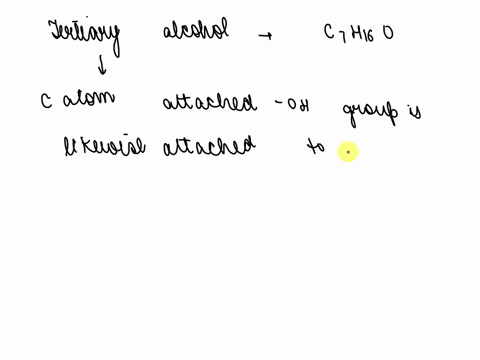 Tertiary alcohol → C₇H₁₆O
↓
C atom attached -OH group is
likewise attached to